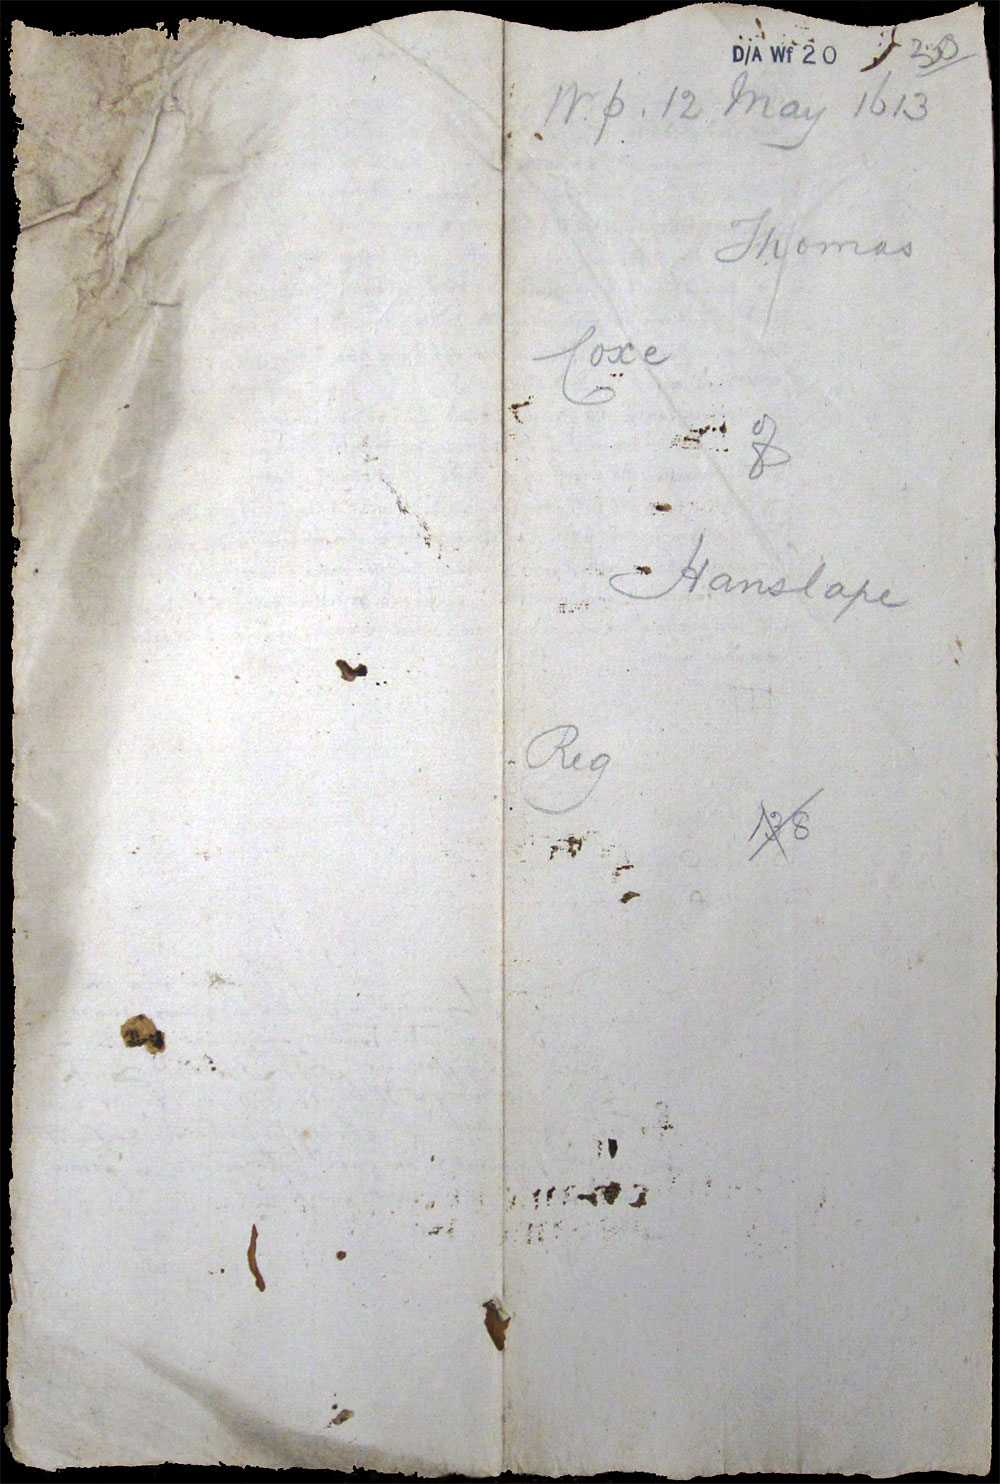 D/A Wf 20
W.p. 12 May 1613
Thomas
Coxe
of
Hanslape
Reg
138